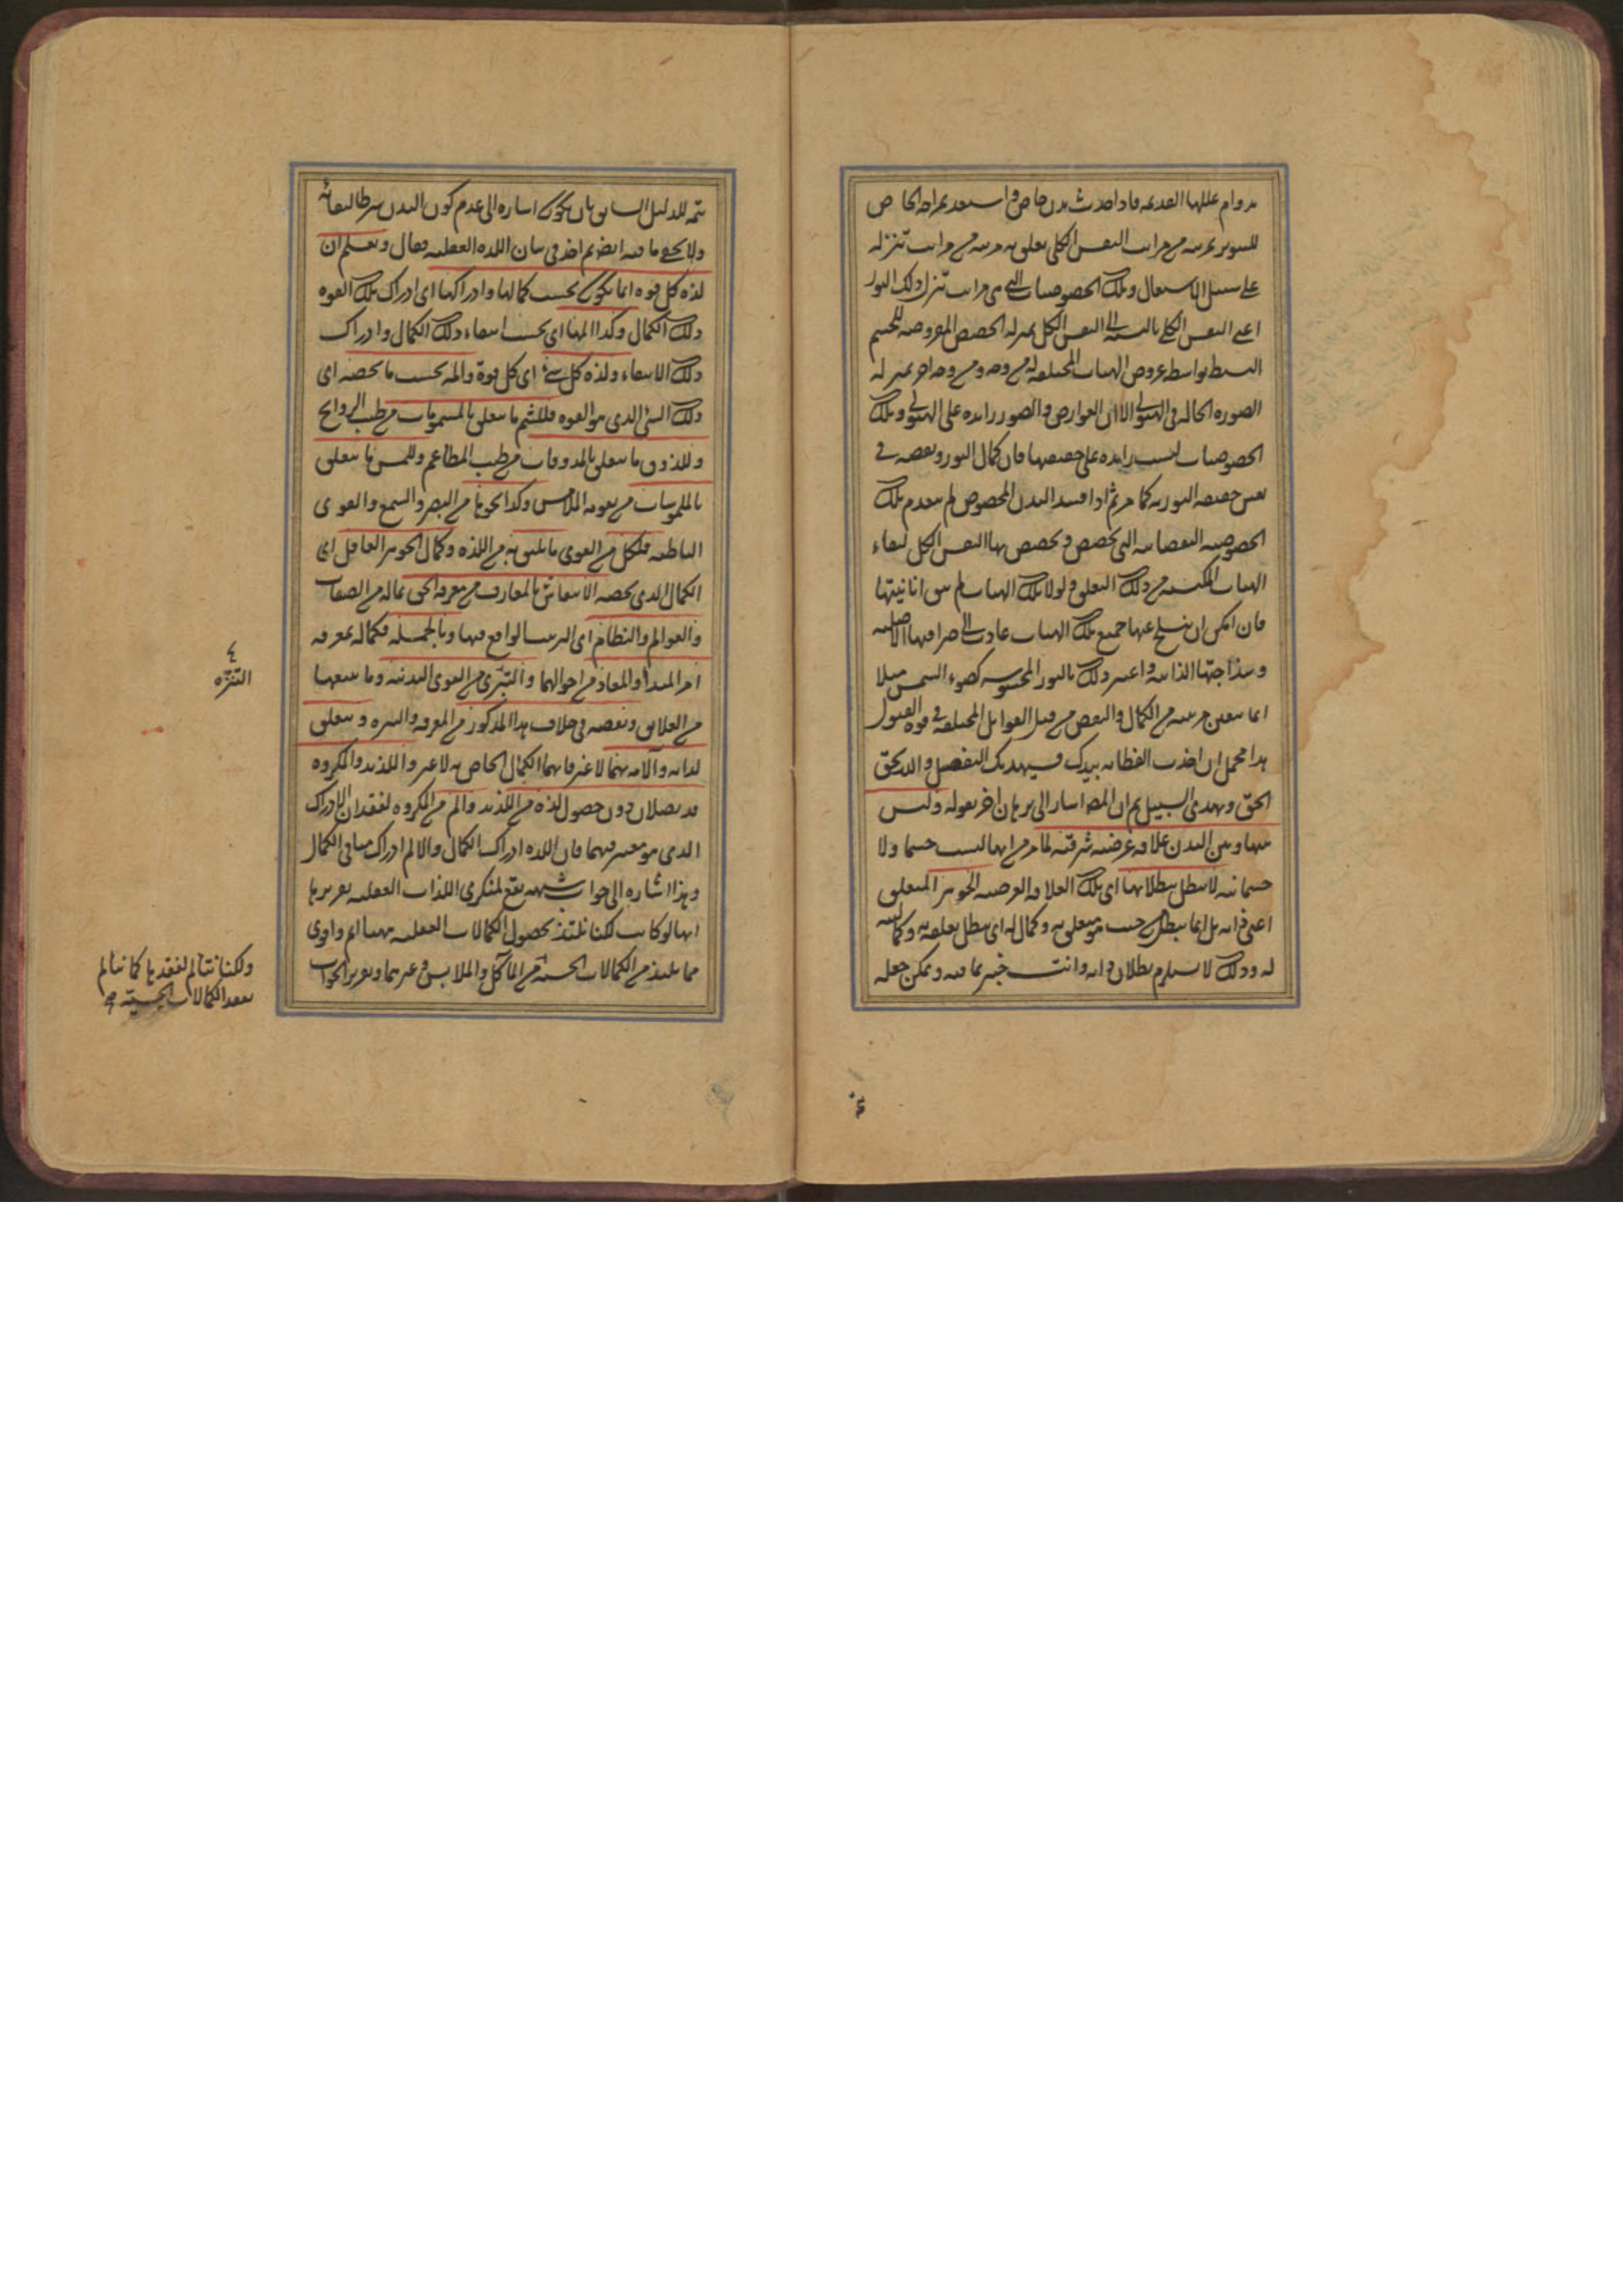 بدوام عللها القديمة فاذا حدث بدن خاص واستعد بمزاجه الخاص
للتنوير بمرتبة من مراتب النفس الكلى تعلق به مرتبة من مراتب تنزله
على سبيل الاستعمال وتلك الخصوصيات التى هى مراتب تنزل ذلك النور
اعنى النفس الكلى بالنسبة الى النفس الكلى بمنزلة الحصص المعروضة للجسم
البسيط بواسطة عروض الهيات المختلفة له من وجه ومن وجه اخر بمنزلة
الصورة الحالة فى الهيولى الا ان العوارض والصور زائدة على الهيولى وتلك
الخصوصيات ليست زائدة على حقيقتها فان كمال النور ونقصه فى
نفس حقيقة النورية كما مر ثم اذا فسد البدن المخصوص لم ينعدم تلك
الخصوصية النقصانية التى تخصص وتحصص بها النفس الكل لبقاء
الهيات المكتسبة من ذلك التعلق ولولا تلك الهيات لم تبق انانيتها
فان امكن ان ينسلخ عنها جميع تلك الهيات عادت الى صرافتها الاصلية
وسذاجتها الذاتية واعتبر ذلك بالنور المحسوس كضوء الشمس مثلا
انما يتعين مرتبته من الكمال والنقص من قبل القوابل المختلفة فى قوة القبول
هذا مجمل ان اخذت الفطانة بيدك فسيهديك التفصيل والله يحق
الحق ويهدى السبيل ثم ان المصـ اشار الى برهان اخر بقوله وليس
بينها وبين البدن علاقة عرضية شرقية لما مر من انها ليست جسما ولا
جسمانية لا تبطل ببطلانها اى تلك العلاقة العرضية الجوهر المتعلق
اعنى ذاته بل انما يبطل من حيث هو متعلق به وكمال له اى يبطل تعلقه به وكماليته
له وذلك لا يستلزم بطلان ذاته وانت خبير بما فيه ويمكن جعله
تتمة للدليل السابق بان يكون اشارة الى عدم كون البدن شرطا لبقائه
ولا يخفى ما فيه ايضا ثم اخذ فى بيان اللذة العقلية فقال وتعلم ان
لذة كل قوة انما يكون بحسب كمالها وادراكها اى ادراك تلك القوة
ذلك الكمال وكذا المها اى بحسب انتفاء ذلك الكمال وادراك
ذلك الانتفاء ولذة كل شئ اى كل قوة والمه بحسب ما يخصه اى
ذلك الشئ الذى هو القوة فللشم ما يتعلق بالمشمومات من طيب الروايح
وللذوق ما يتعلق بالمذوقات من طيب المطاعم وللمس ما يتعلق
بالملموسات من نعومة الملامس وكذا نحوها من البصر والسمع والقوى
الباطنة فلكل من القوى ما يليق به من اللذة وكمال الجوهر العاقل اى
الكمال الذى يخصه الانتقاش بالمعارف من معرفة الحق بماله من الصفات
والعوالم والنظام اى الترتيب الواقع فيها وبالجملة فكماله بمعرفة
امر المبدأ والمعاد من احوالهما والتبرى من القوى البدنية وما يتبعها
من العلايق ونقصه فى خلاف هذا المذكور من المعرفة والتنزه ويتعلق
لذاته وآلامه بهما لا غير فانهما الكمال الخاص به لا غير واللذيذ والمكروه
قد يصلان دون حصول لذة من اللذيذ والم من المكروه لفقدان الادراك
الذى هو معتبر فيهما فان اللذة ادراك الكمال والالم ادراك منافى الكمال
وهذا اشارة الى جواب شبهة يقع لمنكرى اللذات العقلية تقريرها
انها لو كانت لكنا نلتذ بحصول الكمالات العقلية مهنا اتم واقوى
مما نلتذ من الكمالات الحسية من المآكل والملابس وغيرهما وتقرير الجواب
التنزه
ولكنا نتألم لفقدها كما نتألم
بفقد الكمالات الحسية صح